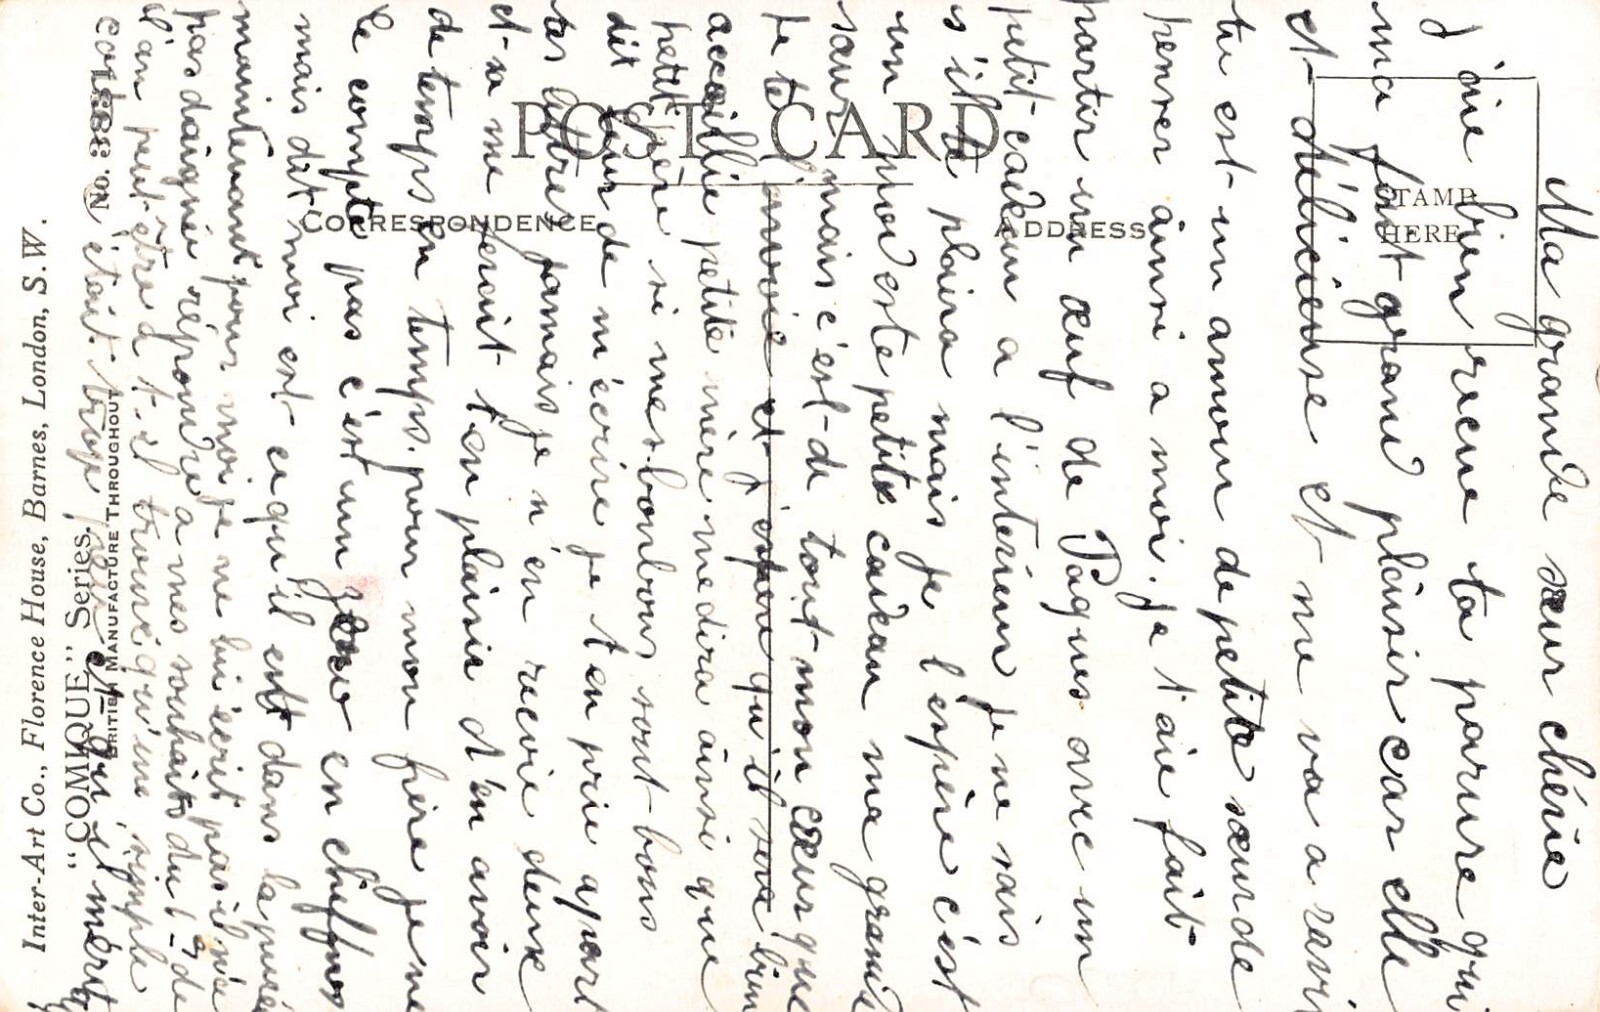 Ma grande sœur chérie
J'aie bien recue ta parure qui
ma fait grand plaisir car elle
et délicieuse et me va a ravir
tu est un amour de petite sœur de
penser ainsi a moi. Je t'aie fait
partir un œuf de Paques avec un
petit cadeau a l'intérieur je ne sais
s'il te plaira mais je l'espère c'est
un pauvre petit cadeau ma grande
sœur mais c'est de tout mon cœur que
je te l'envoie et j'espère qu'il sera bien
accueillie petite mère me dira ainsi que
petit père si mes bonbons sont bons
dit leur de m'écrire je t'en prie apart
tes lettres jamais je n'en recoie deux
et sa me ferait t'en plaisir d'en avoir
de temps en temps. pour mon frère je ne
le compte pas c'est un zéro en chiffres
mais dit moi est ce qu'il est dans la purée
maintenant pour moi je ne lui écrit pas il n'a
pas daigné répondre a mes souhaits du 1er de
l'an peut-être a t-il trouvé qu'une simple
carte était trop
POST CARD
CORRESPONDENCE
ADDRESS
STAMP
HERE
No.
BRITISH MANUFACTURE THROUGHOUT
"COMIQUE" Series.
Inter-Art Co., Florence House, Barnes, London, S.W.